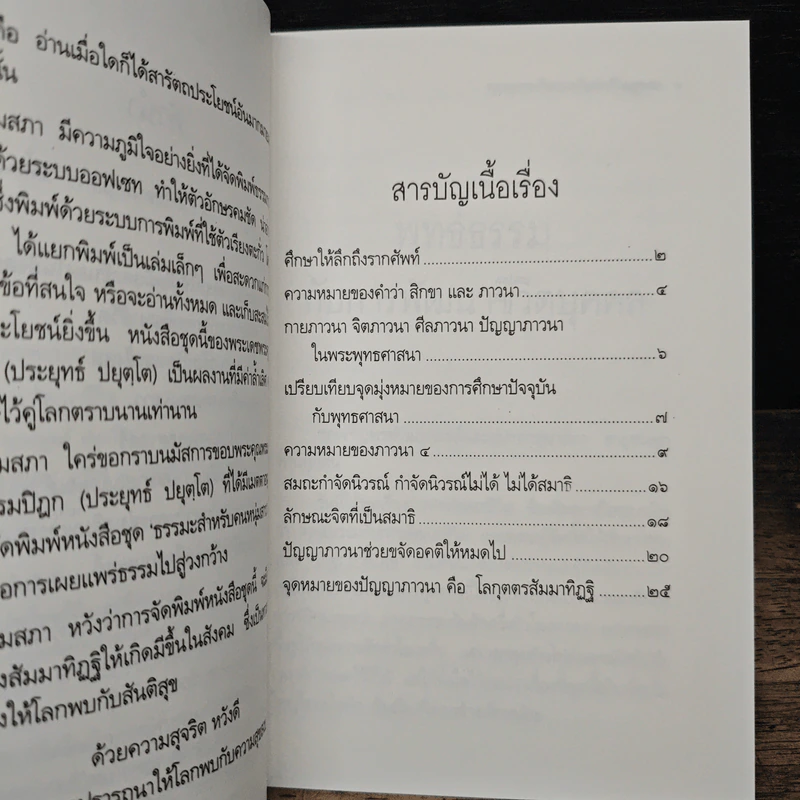 คือ อ่านเมื่อใดก็ได้สารัตถประโยชน์อันมากมาย
มสภา มีความภูมิใจอย่างยิ่งที่ได้จัดพิมพ์
ด้วยระบบออฟเซท ทำให้ตัวอักษรคมชัด
ซึ่งพิมพ์ด้วยระบบการพิมพ์ที่ใช้ตัวเรียงตะกั่ว
ได้แยกพิมพ์เป็นเล่มเล็กๆ เพื่อสะดวกแก่
ข้อที่สนใจ หรือจะอ่านทั้งหมด และเก็บสะสม
ะโยชน์ยิ่งขึ้น หนังสือชุดนี้ของพระเดชพระ
(ประยุทธ์ ปยุตฺโต) เป็นผลงานที่มีค่าล้ำเลิศ
ไว้คู่โลกตราบนานเท่านาน
มสภา ใคร่ขอกราบนมัสการขอบพระคุณพระ
รมปิฎก (ประยุทธ์ ปยุตฺโต) ที่ได้มีเมตตา
ัดพิมพ์หนังสือชุด 'ธรรมะสำหรับคนหนุ่มสาว
อการเผยแพร่ธรรมไปสู่วงกว้าง
มสภา หวังว่าการจัดพิมพ์หนังสือชุดนี้ จะ
งสัมมาทิฏฐิให้เกิดมีขึ้นในสังคม ซึ่งเป็น
งให้โลกพบกับสันติสุข
ด้วยความสุจริต หวังดี
ปรารถนาให้โลกพบกับความสุข
สารบัญเนื้อเรื่อง
ศึกษาให้ลึกถึงรากศัพท์ ................ ๒
ความหมายของคำว่า สิกขา และ ภาวนา ................ ๔
กายภาวนา จิตภาวนา ศีลภาวนา ปัญญาภาวนา
ในพระพุทธศาสนา ................ ๖
เปรียบเทียบจุดมุ่งหมายของการศึกษาปัจจุบัน
กับพุทธศาสนา ................ ๗
ความหมายของภาวนา ๔ ................ ๙
สมถะกำจัดนิวรณ์ กำจัดนิวรณ์ไม่ได้ ไม่ได้สมาธิ ................ ๑๖
ลักษณะจิตที่เป็นสมาธิ ................ ๑๘
ปัญญาภาวนาช่วยขจัดอคติให้หมดไป ................ ๒๐
จุดหมายของปัญญาภาวนา คือ โลกุตตรสัมมาทิฏฐิ ................ ๒๕